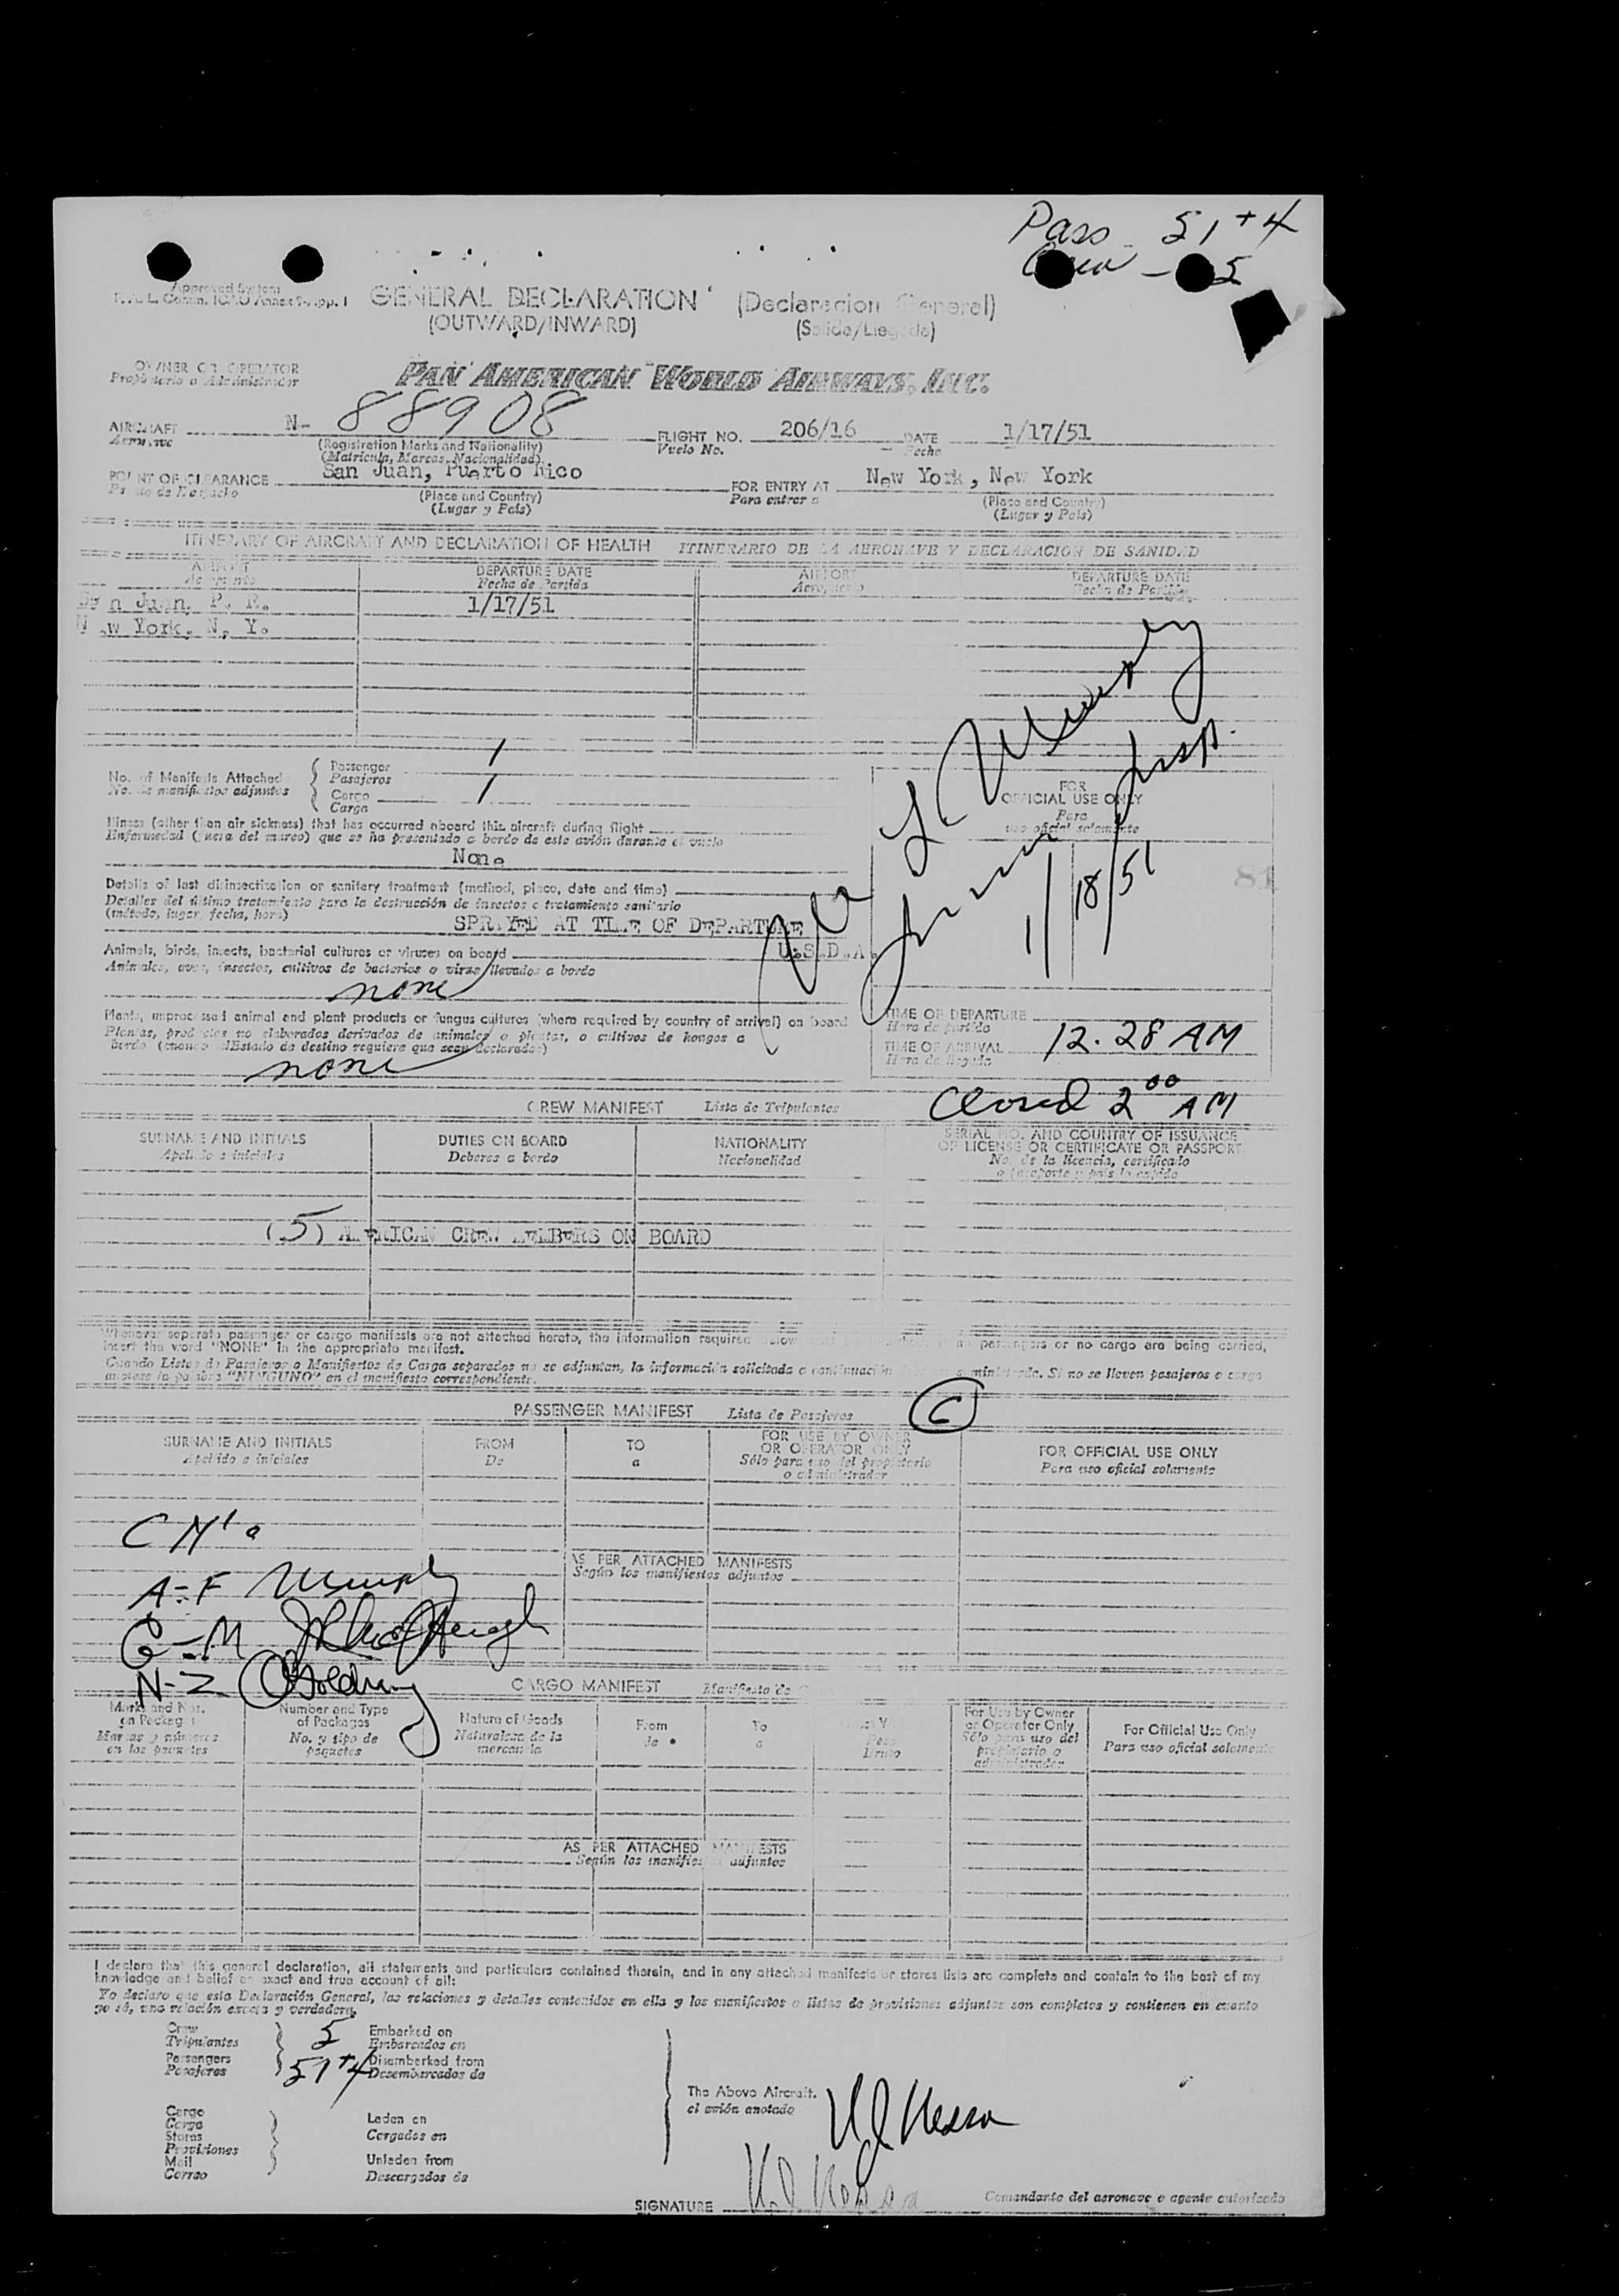 Pass - 51 + 4
Crew - 5
Approved System
GENERAL DECLARATION (Declaracion General)
(OUTWARD/INWARD) (Salida/Llegada)
OWNER OR OPERATOR
Propietario o Administrador
PAN AMERICAN WORLD AIRWAYS, INC.
AIRCRAFT N- 88908 FLIGHT NO. 206/16 DATE 1/17/51
Aeronave (Registration Marks and Nationality) Vuelo No. Fecha
(Matricula, Marcas, Nacionalidad)
POINT OF CLEARANCE San Juan, Puerto Rico FOR ENTRY AT New York, New York
(Place and Country) Para entrar a (Place and Country)
(Lugar y País) (Lugar y País)
ITINERARY OF AIRCRAFT AND DECLARATION OF HEALTH ITINERARIO DE LA AERONAVE Y DECLARACION DE SANIDAD
AIRPORT DEPARTURE DATE AIRPORT DEPARTURE DATE
Aeropuerto Fecha de Partida Aeropuerto Fecha de Partida
San Juan, P. R. 1/17/51
New York, N. Y.
No. of Manifests Attached Passenger 1
No. de manifiestos adjuntos Pasajeros
Cargo 1
Carga
FOR
OFFICIAL USE ONLY
Para
uso oficial solamente
Imm Insp.
1/18/51
81
Illness (other than air sickness) that has occurred aboard this aircraft during flight
Enfermedad (fuera del mareo) que se ha presentado a bordo de este avión durante el vuelo
None
Details of last disinsectization or sanitary treatment (method, place, date and time)
Detalles del último tratamiento para la destrucción de insectos o tratamiento sanitario
(método, lugar, fecha, hora)
SPRAYED AT TIME OF DEPARTURE
U.S.D.A.
Animals, birds, insects, bacterial cultures or viruses on board
Animales, aves, insectos, cultivos de bacterias o virus llevados a bordo
none
Plants, unprocessed animal and plant products or fungus cultures (where required by country of arrival) on board
Plantas, productos no elaborados derivados de animales o plantas, o cultivos de hongos a
bordo (cuando el Estado de destino requiera que sean declarados)
none
TIME OF DEPARTURE
Hora de partida
TIME OF ARRIVAL 12.28 AM
Hora de llegada
Closed 2 00 AM
CREW MANIFEST Lista de Tripulantes
SURNAME AND INITIALS DUTIES ON BOARD NATIONALITY SERIAL NO. AND COUNTRY OF ISSUANCE
Apellido e iniciales Deberes a bordo Nacionalidad OF LICENSE OR CERTIFICATE OR PASSPORT
No. de la licencia, certificado
o pasaporte y país lo expide
(5) AMERICAN CREW MEMBERS ON BOARD
Whenever separate passenger or cargo manifests are not attached hereto, the information required below passengers or no cargo are being carried,
insert the word "NONE" in the appropriate manifest.
Cuando Listas de Pasajeros o Manifiestos de Carga separados no se adjuntan, la información solicitada a continuación suministrada. Si no se lleven pasajeros o carga
anótese la palabra "NINGUNO" en el manifiesto correspondiente.
PASSENGER MANIFEST Lista de Pasajeros C
SURNAME AND INITIALS FROM TO FOR USE BY OWNER OR OPERATOR ONLY FOR OFFICIAL USE ONLY
Apellido e iniciales De a Sólo para uso del propietario o administrador Para uso oficial solamente
AS PER ATTACHED MANIFESTS
Según los manifiestos adjuntos
A-F Murphy
G-M
N-Z
CARGO MANIFEST Manifiesto de
Marks and Nos. on Packages Number and Type of Packages Nature of Goods From To For Use by Owner or Operator Only For Official Use Only
Marcas y números en los paquetes No. y tipo de paquetes Naturaleza de la mercancía de a Peso Bruto Sólo para uso del propietario o administrador Para uso oficial solamente
AS PER ATTACHED MANIFESTS
Según los manifiestos adjuntos
I declare that this general declaration, all statements and particulars contained therein, and in any attached manifests or stores lists are complete and contain to the best of my
knowledge and belief an exact and true account of all:
Yo declaro que esta Declaración General, las relaciones y detalles contenidos en ella y los manifiestos o listas de provisiones adjuntos son completos y contienen en cuanto
yo sé, una relación exacta y verdadera.
Crew 5 Embarked on
Tripulantes Embarcados en
Passengers 51 + 4 Disembarked from
Pasajeros Desembarcados de
The Above Aircraft.
el avión anotado
Cargo Laden on
Carga Cargados en
Stores
Provisiones
Mail Unladen from
Correo Descargados de
SIGNATURE Comandante del aeronave o agente autorizado